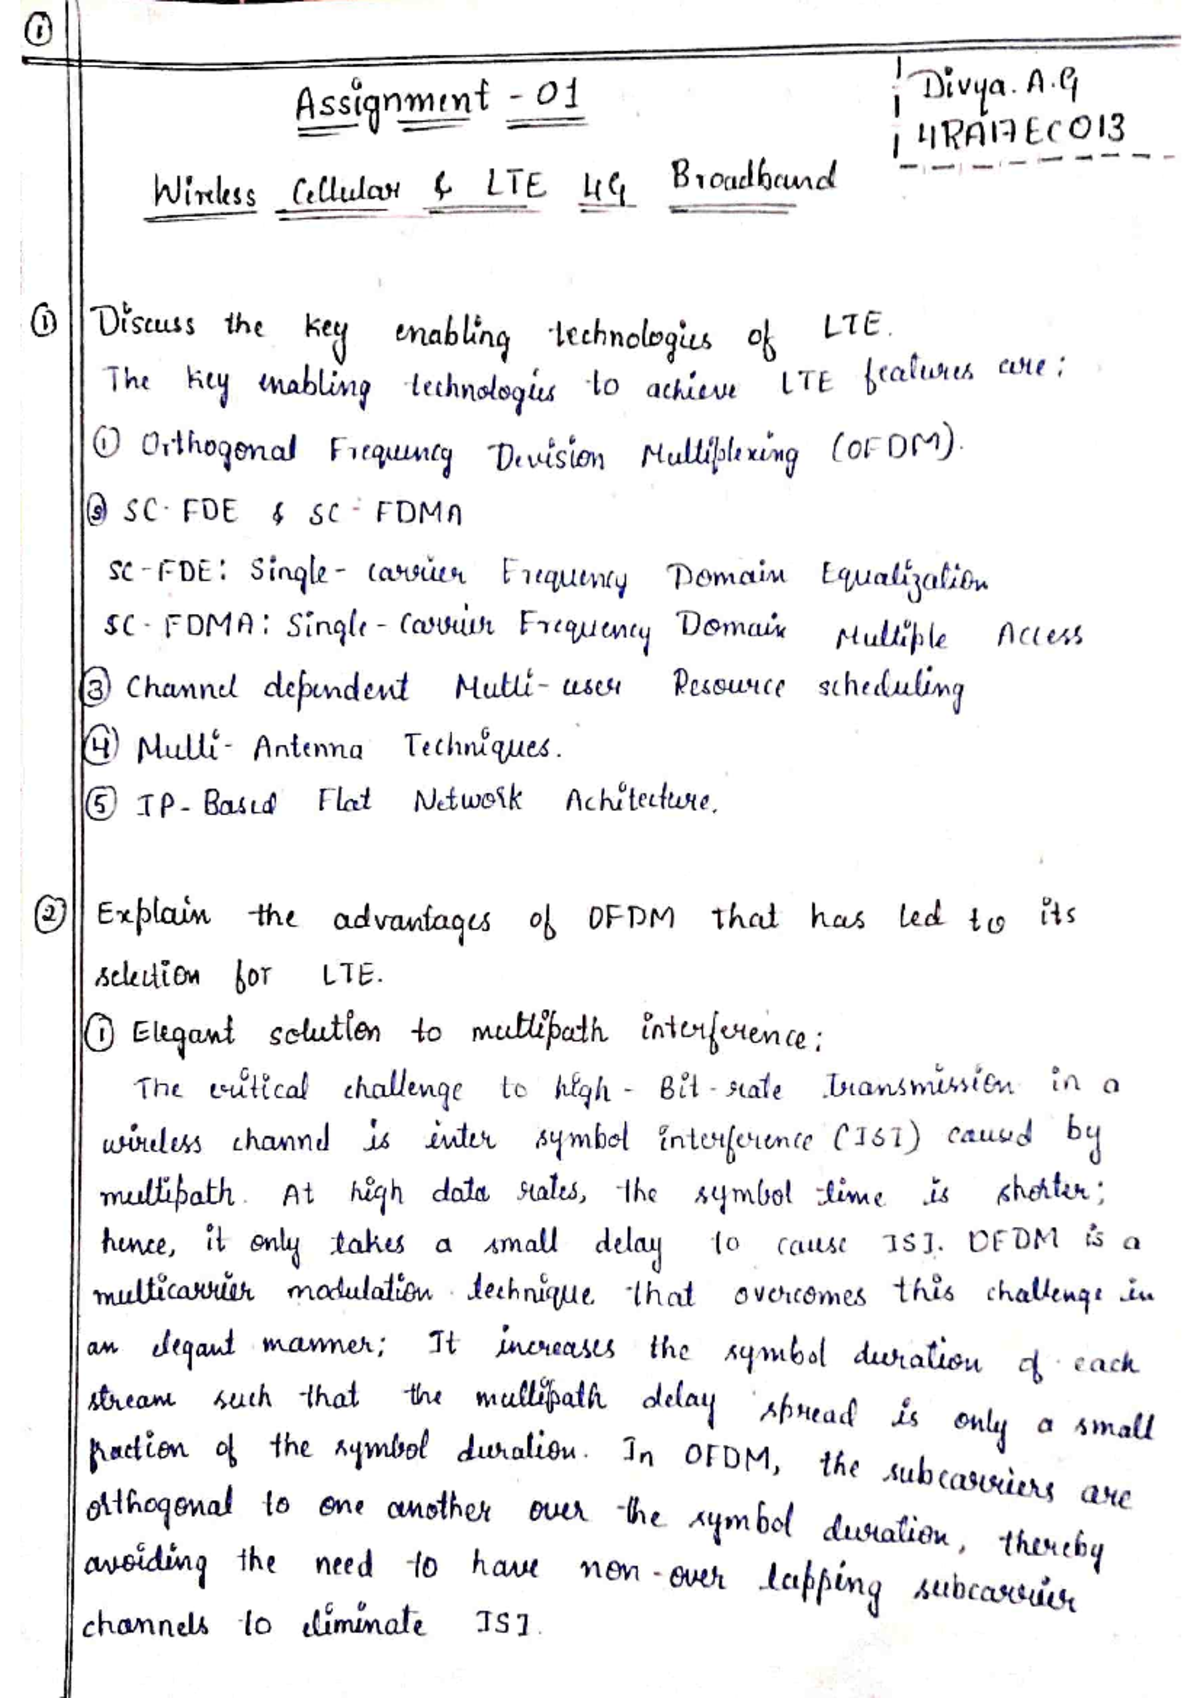 ①
Assignment - 01
Divya. A.G
4RA17EC013
Wireless Cellular & LTE 4G Broadband
① Discuss the key enabling technologies of LTE.
The key enabling technologies to achieve LTE features are:
① Orthogonal Frequency Devision Multiplexing (OFDM).
② SC-FDE & SC-FDMA
SC-FDE: Single-carrier Frequency Domain Equalization
SC-FDMA: Single-Carrier Frequency Domain Multiple Access
③ Channel dependent Multi-user Resource scheduling
④ Multi-Antenna Techniques.
⑤ IP-Based Flat Network Achitecture.
② Explain the advantages of OFDM that has led to its
selection for LTE.
① Elegant solution to multipath interference:
The critical challenge to high-Bit-rate Transmission in a
wireless channel is inter symbol interference (ISI) caused by
multipath. At high data rates, the symbol time is shorter;
hence, it only takes a small delay to cause ISI. OFDM is a
multicarrier modulation technique that overcomes this challenge in
an elegant manner; It increases the symbol duration of each
stream such that the multipath delay spread is only a small
fraction of the symbol duration. In OFDM, the subcarriers are
orthogonal to one another over the symbol duration, thereby
avoiding the need to have non-over lapping subcarrier
channels to eliminate ISI.